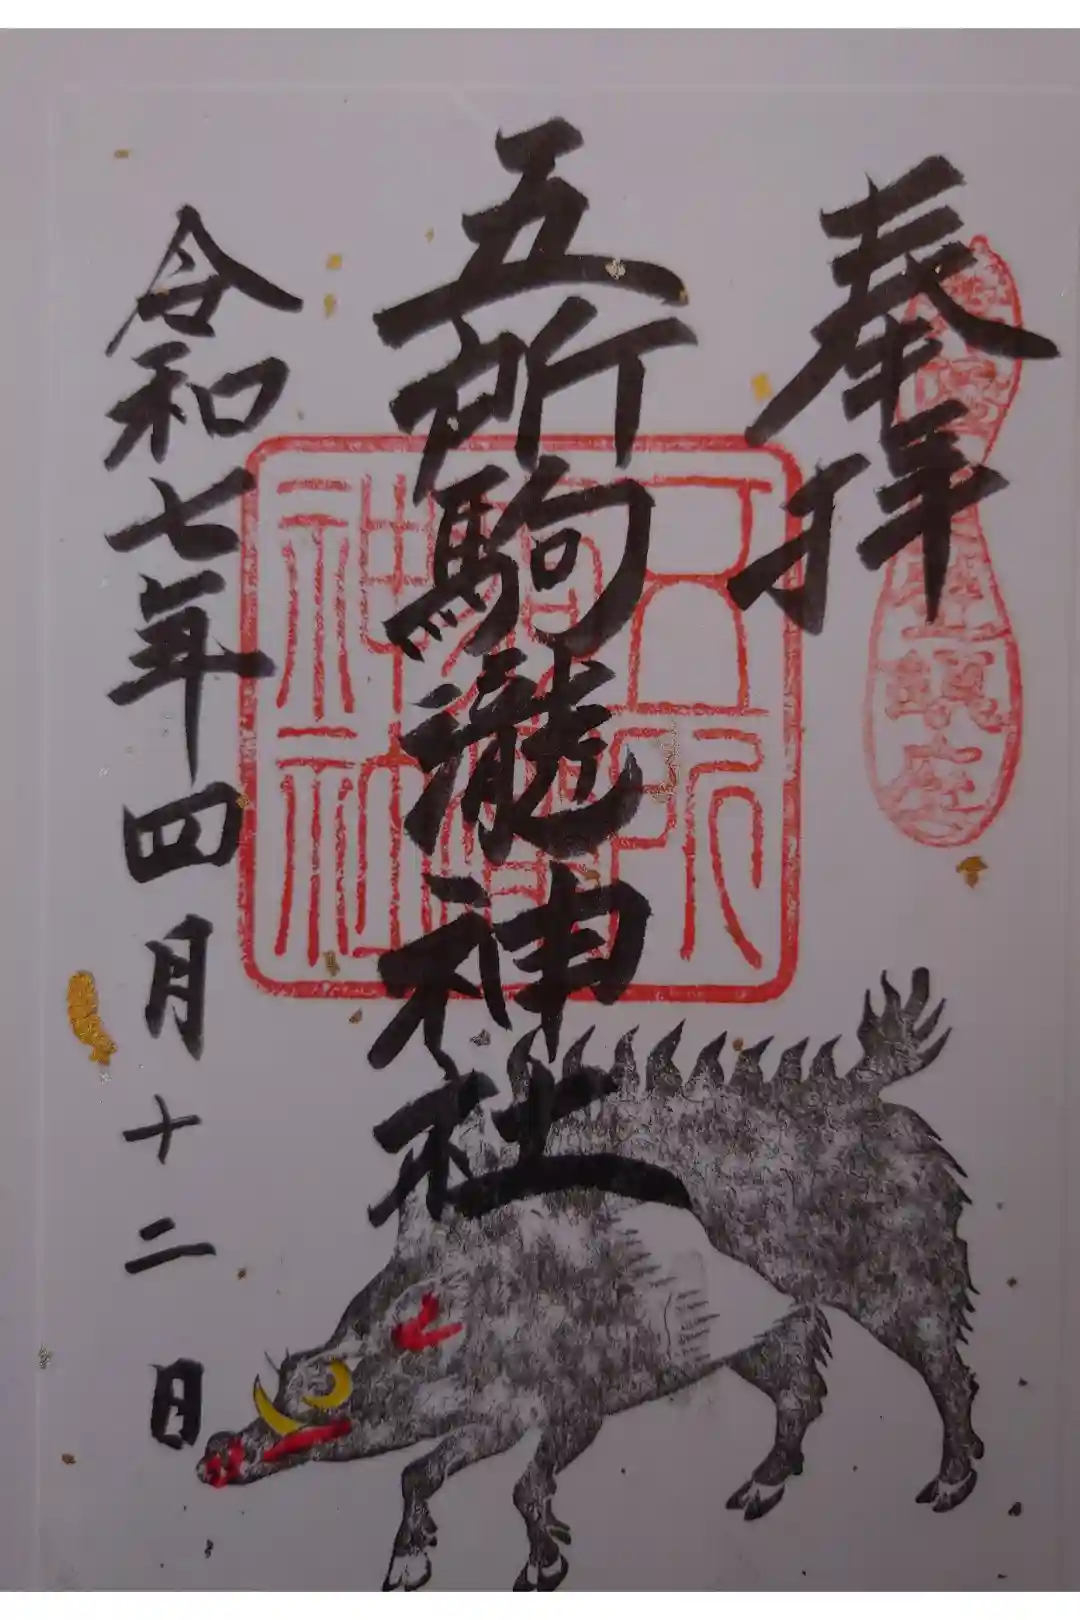 奉拝
五所駒瀧神社
令和七年四月十二日
五所駒瀧神社